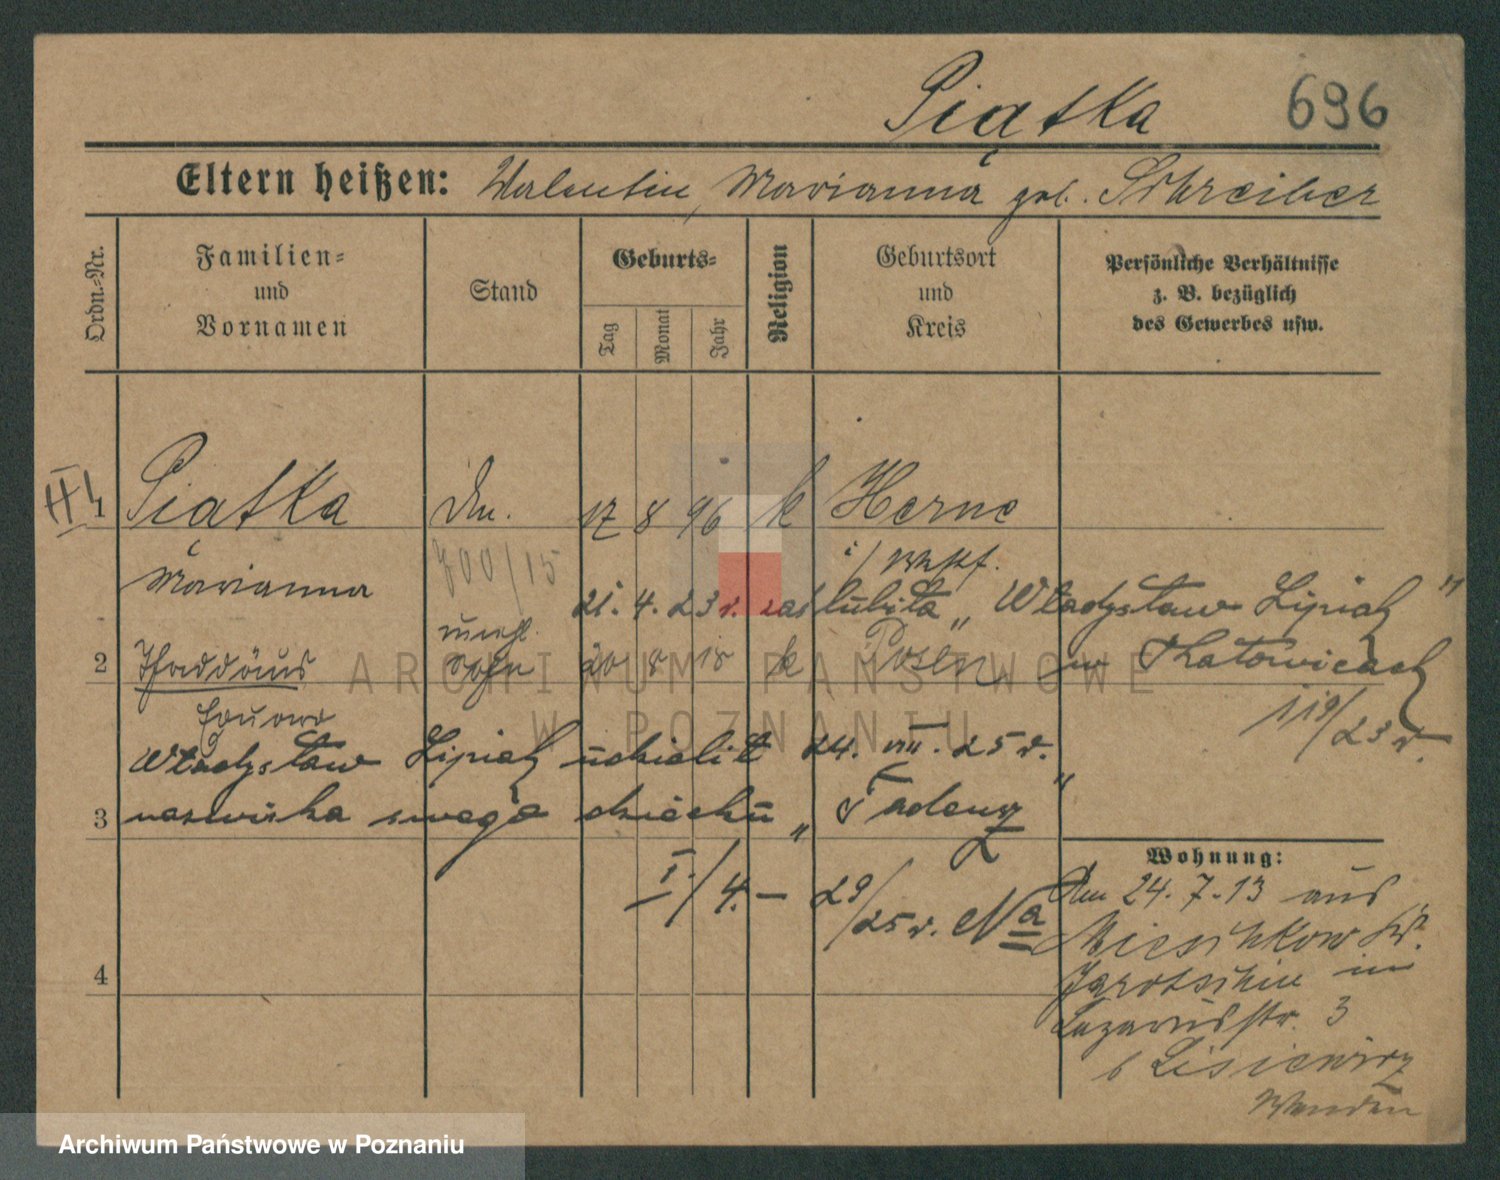 Piątka 696
Eltern heißen: Valentin, Marianna geb. Schreiber
Ordn.-Nr.
Familien-
und
Vornamen
Stand
Geburts-
Tag
Monat
Jahr
Religion
Geburtsort
und
Kreis
Persönliche Verhältnisse
z. B. bezüglich
des Gewerbes usw.
1 Piątka 17 8 96 k Herne
i/Westf.
Marianna
21. 4. 23 r. zaślubiła „Władysław Lipiak"
w Katowicach
119/23 r.
2 Thaddäus unehl. Sohn 20 8 18 k Posen
Eduard
Władysław Lipiak udzielił 24. VIII. 25 r.
3 nazwiska swego dziecku „Tadeusz"
I./4. – 29/25 r.
4
Wohnung:
Am 24.7.13 aus
Mieschkow Kr.
Jarotschin in
Lazarusstr. 3
b Lisiewicz
Wenden
ARCHIWUM PAŃSTWOWE
W POZNANIU
Archiwum Państwowe w Poznaniu